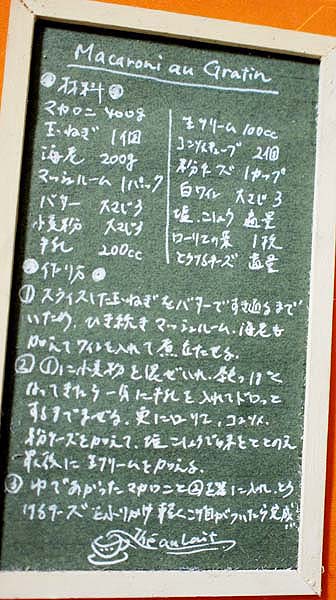 Macaroni au Gratin
材料
マカロニ 400g
玉ねぎ 1個
海老 200g
マッシュルーム 1パック
バター 大さじ3
小麦粉 大さじ3
牛乳 200cc
生クリーム 100cc
コンソメキューブ 2個
粉チーズ 1カップ
白ワイン 大さじ3
塩、こしょう 適量
ローリエの葉 1枚
とろけるチーズ 適量
作り方
① スライスした玉ねぎをバターですき通るまで
いため、ひき続きマッシュルーム、海老を
加えてワインを入れて煮立たせる。
② ①に小麦粉を混ぜ入れ、
なってきたら一気に牛乳を入れてトロッと
するまでまぜる。更にローリエ、コンソメ、
粉チーズを加えて、塩こしょうで味をととのえ
最後に生クリームを加える。
③ ゆであがったマカロニと②を器に入れ、とろ
けるチーズをふりかけ軽くこげ目がついたら完成!!
Thé au Lait